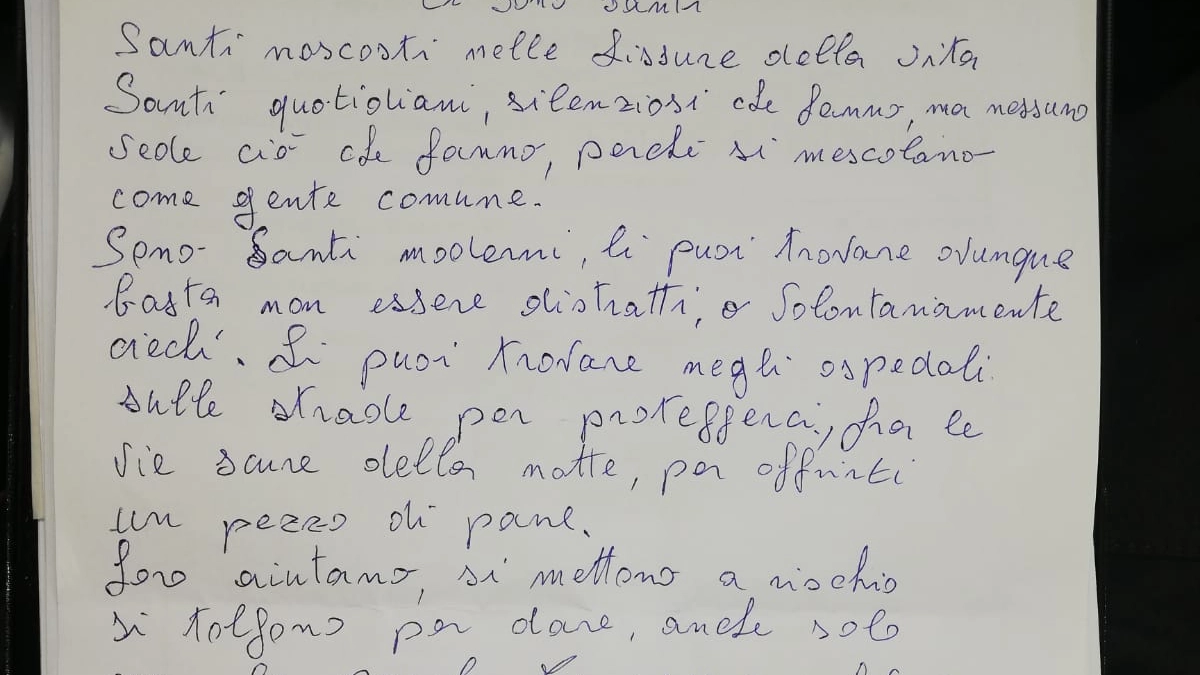 Ci sono santi
Santi nascosti nelle fissure della vita
Santi quotidiani, silenziosi che fanno, ma nessuno
vede ciò che fanno, perché si mescolano
come gente comune.
Sono Santi moderni, li puoi trovare ovunque
basta non essere distratti, o volontariamente
ciechi. Li puoi trovare negli ospedali
sulle strade per proteggerci, fra le
vie scure della notte, per offrirti
un pezzo di pane.
Loro aiutano, si mettono a rischio
si tolgono per dare, anche solo